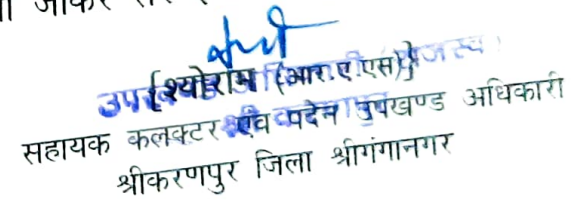 जाकर
{श्योराम (आर.ए.एस)}
सहायक कलक्टर एंव पदेन उपखण्ड अधिकारी
श्रीकरणपुर जिला श्रीगंगानगर